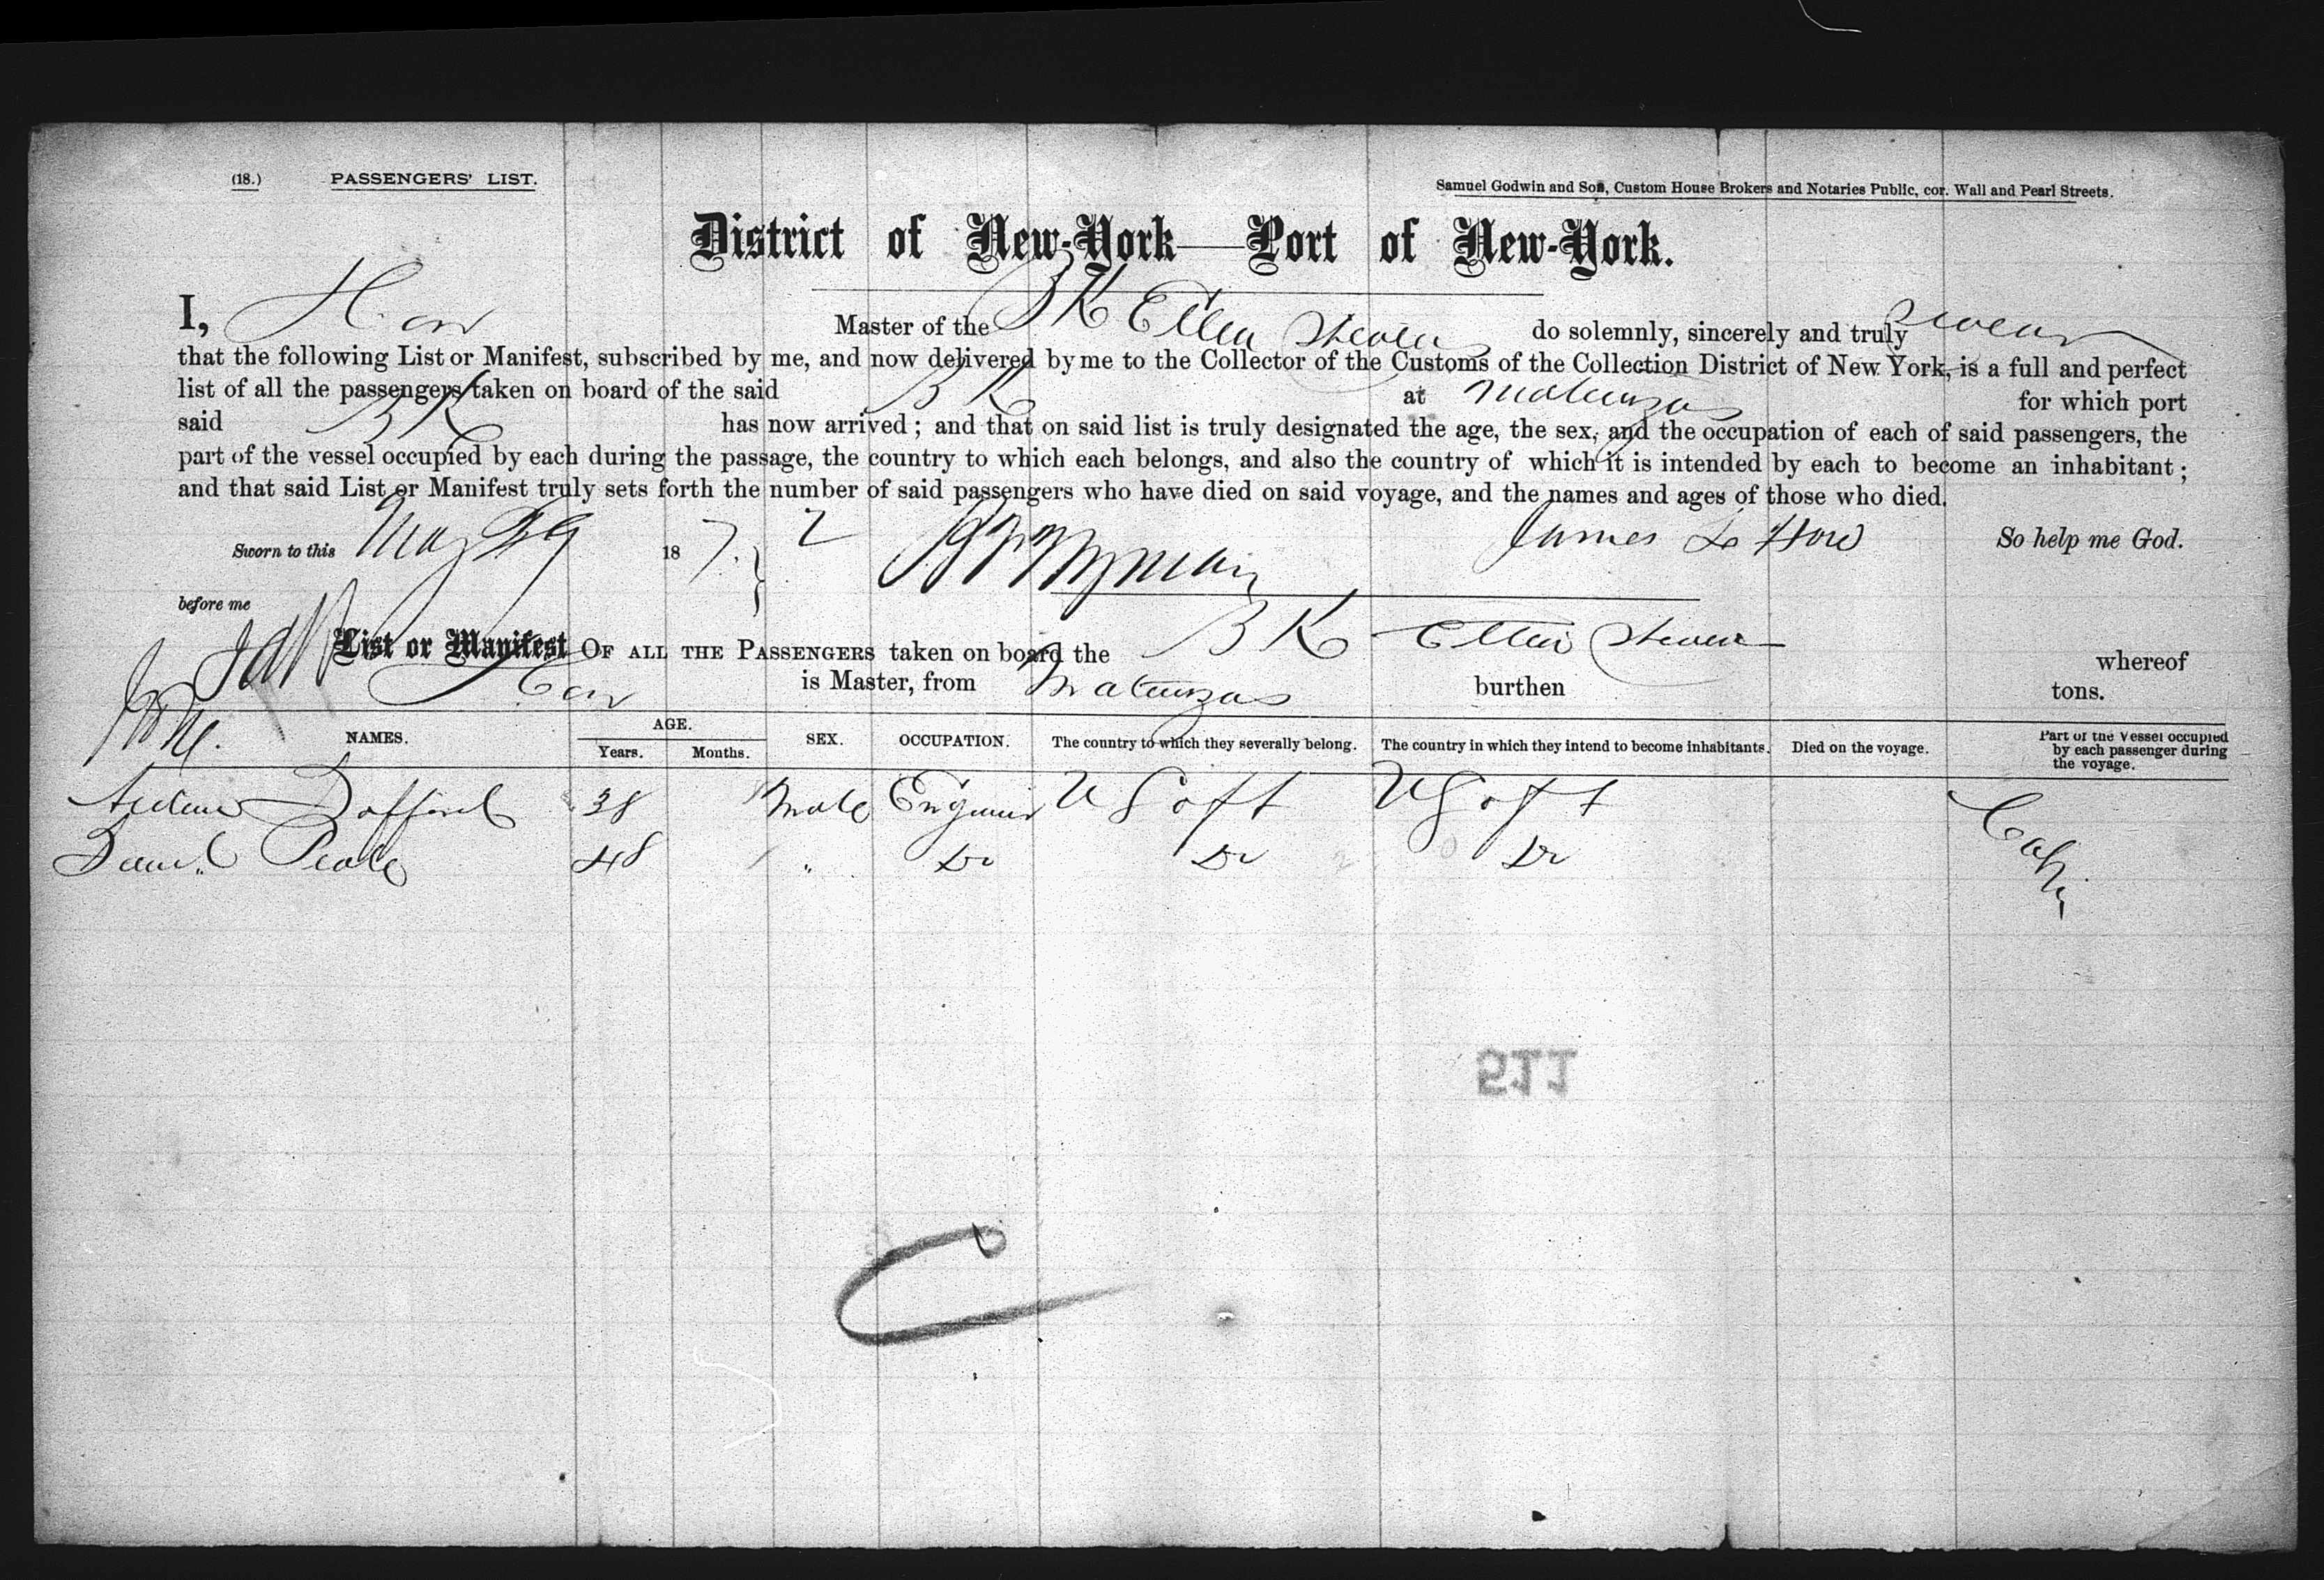 (18.) PASSENGERS' LIST.
Samuel Godwin and Son, Custom House Brokers and Notaries Public, cor. Wall and Pearl Streets.
District of New-York—Port of New-York.
I, How Master of the BK Ellen Stevens do solemnly, sincerely and truly swear
that the following List or Manifest, subscribed by me, and now delivered by me to the Collector of the Customs of the Collection District of New York, is a full and perfect
list of all the passengers taken on board of the said BK at Matanzas for which port
said BK has now arrived; and that on said list is truly designated the age, the sex, and the occupation of each of said passengers, the
part of the vessel occupied by each during the passage, the country to which each belongs, and also the country of which it is intended by each to become an inhabitant;
and that said List or Manifest truly sets forth the number of said passengers who have died on said voyage, and the names and ages of those who died.
Sworn to this May 29 187. 2 James L How So help me God.
before me
List or Manifest OF ALL THE PASSENGERS taken on board the BK Ellen Stevens whereof
is Master, from Matanzas burthen tons.
NAMES. AGE. Years. Months. SEX. OCCUPATION. The country to which they severally belong. The country in which they intend to become inhabitants. Died on the voyage. Part of the Vessel occupied by each passenger during the voyage.
38 Male Engineer U S of A U S of A Cabin
Peale 48 " Do Do Do
511
C